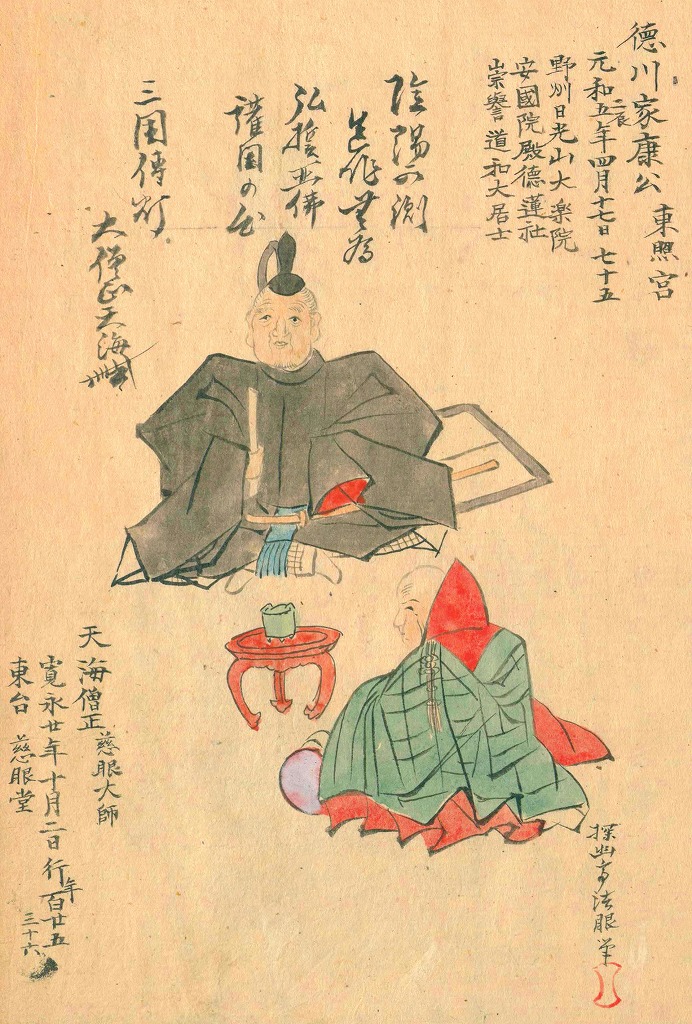 德川家康公 東照宮
元和二辰五年四月十七日 七十五
野州日光山大楽院
安國院殿德蓮社
崇譽道和大居士
陰陽不測
造作無為
弘誓亜佛
護国
三国傳灯
大僧正天海
天海僧正 慈眼大師
寛永廿年十月二日 行年百廿五
東台 慈眼堂
三十六
探幽斎法眼筆